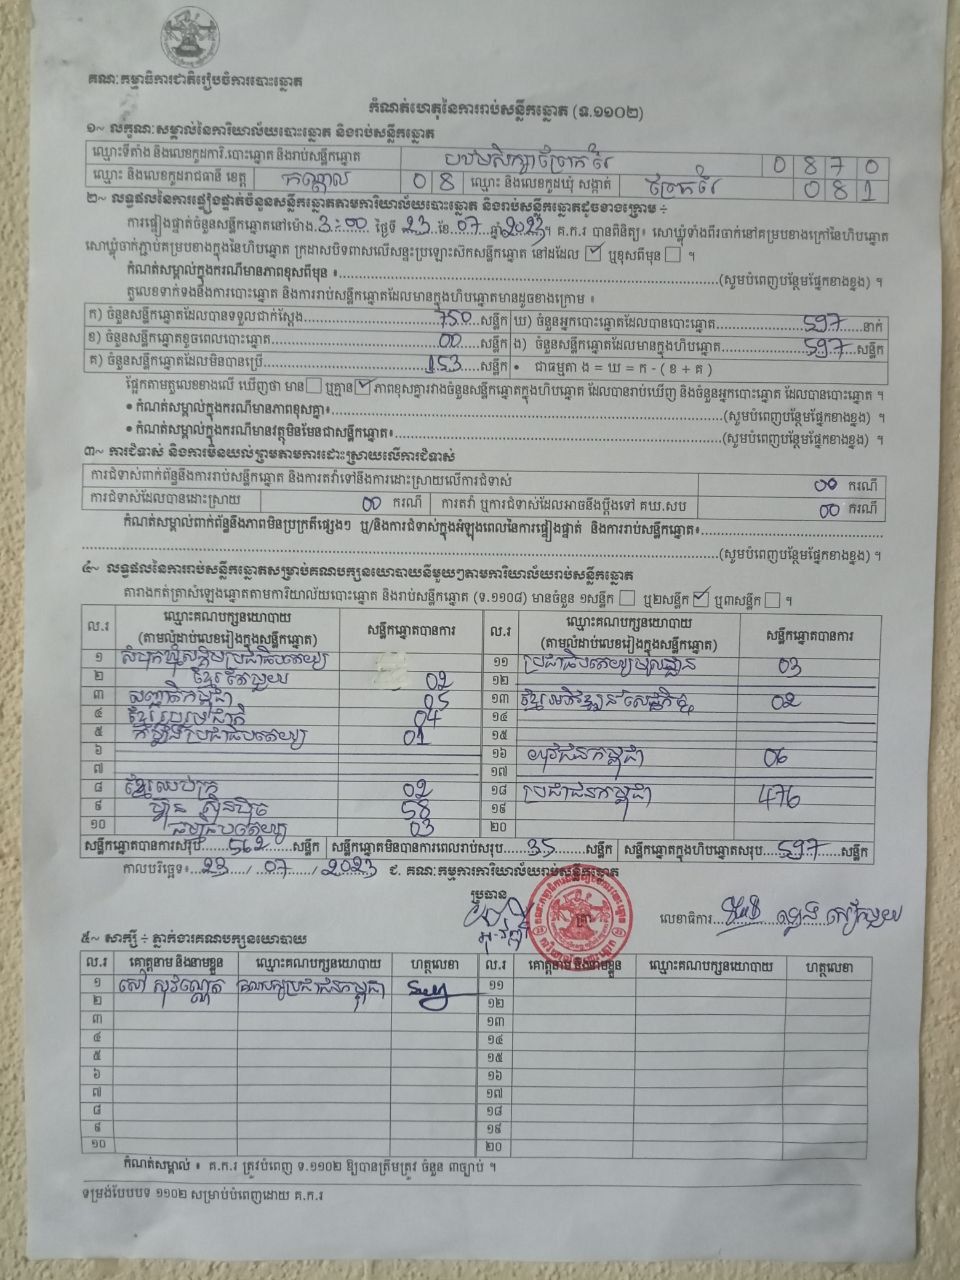 គណៈកម្មាធិការជាតិរៀបចំការបោះឆ្នោត
កំណត់ហេតុនៃការរាប់សន្លឹកឆ្នោត (ទ.១១០២)
១~ លក្ខណៈសម្គាល់នៃការិយាល័យបោះឆ្នោត និងរាប់សន្លឹកឆ្នោត
ឈ្មោះទីតាំង និងលេខកូដការិ.បោះឆ្នោត និងរាប់សន្លឹកឆ្នោត 0 8 7 0
ឈ្មោះ និងលេខកូដរាជធានី ខេត្ត កណ្តាល 0 8 ឈ្មោះ និងលេខកូដឃុំ សង្កាត់ 0 8 1
២~ លទ្ធផលនៃការផ្ទៀងផ្ទាត់ចំនួនសន្លឹកឆ្នោតតាមការិយាល័យបោះឆ្នោត និងរាប់សន្លឹកឆ្នោតដូចខាងក្រោម ÷
ការផ្ទៀងផ្ទាត់ចំនួនសន្លឹកឆ្នោតនៅម៉ោង 3:00 ថ្ងៃទី 23 ខែ 07 ឆ្នាំ 2023។ គ.ក.រ បានពិនិត្យ៖ សោឃ្លុំទាំងពីរចាក់នៅគម្របខាងក្រៅនៃហិបឆ្នោត
សោឃ្លុំចាក់ភ្ជាប់គម្របខាងក្នុងនៃហិបឆ្នោត ក្រដាសបិទពាសលើសន្ទះប្រឡោះស៊កសន្លឹកឆ្នោត នៅដដែល ☑ ឬខុសពីមុន ☐ ។
កំណត់សម្គាល់ក្នុងករណីមានភាពខុសពីមុន ៖ (សូមបំពេញបន្ថែមផ្នែកខាងខ្នង) ។
តួលេខទាក់ទងនឹងការបោះឆ្នោត និងការរាប់សន្លឹកឆ្នោតដែលមានក្នុងហិបឆ្នោតមានដូចខាងក្រោម ៖
ក) ចំនួនសន្លឹកឆ្នោតដែលបានទទួលជាក់ស្តែង 750 សន្លឹក ឃ) ចំនួនអ្នកបោះឆ្នោតដែលបានបោះឆ្នោត 597 នាក់
ខ) ចំនួនសន្លឹកឆ្នោតខូចពេលបោះឆ្នោត 00 សន្លឹក ង) ចំនួនសន្លឹកឆ្នោតដែលមានក្នុងហិបឆ្នោត 597 សន្លឹក
គ) ចំនួនសន្លឹកឆ្នោតដែលមិនបានប្រើ 153 សន្លឹក • ជាធម្មតា ង = ឃ = ក - ( ខ + គ )
ផ្អែកតាមតួលេខខាងលើ ឃើញថា មាន ☐ ឬគ្មាន ☑ ភាពខុសគ្នារវាងចំនួនសន្លឹកឆ្នោតក្នុងហិបឆ្នោត ដែលបានរាប់ឃើញ និងចំនួនអ្នកបោះឆ្នោត ដែលបានបោះឆ្នោត ។
• កំណត់សម្គាល់ក្នុងករណីមានភាពខុសគ្នា៖ (សូមបំពេញបន្ថែមផ្នែកខាងខ្នង) ។
• កំណត់សម្គាល់ក្នុងករណីមានវត្ថុមិនមែនជាសន្លឹកឆ្នោត៖ (សូមបំពេញបន្ថែមផ្នែកខាងខ្នង) ។
៣~ ការជំទាស់ និងការមិនយល់ព្រមតាមការដោះស្រាយលើការជំទាស់
ការជំទាស់ពាក់ព័ន្ធនឹងការរាប់សន្លឹកឆ្នោត និងការតវ៉ាទៅនឹងការដោះស្រាយលើការជំទាស់ 00 ករណី
ការជំទាស់ដែលបានដោះស្រាយ 00 ករណី ការតវ៉ា ឬការជំទាស់ដែលអាចនឹងប្តឹងទៅ គឃ.សប 00 ករណី
កំណត់សម្គាល់ពាក់ព័ន្ធនឹងភាពមិនប្រក្រតីផ្សេងៗ ឬ/និងការជំទាស់ក្នុងអំឡុងពេលនៃការផ្ទៀងផ្ទាត់ និងការរាប់សន្លឹកឆ្នោត៖
(សូមបំពេញបន្ថែមផ្នែកខាងខ្នង) ។
៤~ លទ្ធផលនៃការរាប់សន្លឹកឆ្នោតសម្រាប់គណបក្សនយោបាយនីមួយៗតាមការិយាល័យរាប់សន្លឹកឆ្នោត
តារាងកត់ត្រាសំឡេងឆ្នោតតាមការិយាល័យបោះឆ្នោត និងរាប់សន្លឹកឆ្នោត (ទ.១១០៨) មានចំនួន ១សន្លឹក ☐ ឬ២សន្លឹក ☑ ឬ៣សន្លឹក ☐ ។
ល.រ ឈ្មោះគណបក្សនយោបាយ (តាមលំដាប់លេខរៀងក្នុងសន្លឹកឆ្នោត) សន្លឹកឆ្នោតបានការ ល.រ ឈ្មោះគណបក្សនយោបាយ (តាមលំដាប់លេខរៀងក្នុងសន្លឹកឆ្នោត) សន្លឹកឆ្នោតបានការ
១ សំបុកឃ្មុំសង្គមប្រជាធិបតេយ្យ ១១ ប្រជាធិបតេយ្យមូលដ្ឋាន 03
២ ខ្មែរតែមួយ 02 ១២
៣ សញ្ជាតិកម្ពុជា 05 ១៣ ខ្មែរអភិវឌ្ឍន៍សេដ្ឋកិច្ច 02
៤ ខ្មែររួបរួមជាតិ 04 ១៤
៥ កម្លាំងប្រជាធិបតេយ្យ 01 ១៥
៦ ១៦ យុវជនកម្ពុជា 06
៧ ១៧
៨ ខ្មែរឈប់ក្រ 02 ១៨ ប្រជាជនកម្ពុជា 476
៩ ហ្វ៊ុនស៊ិនប៉ិច 58 ១៩
១០ ធម្មាធិបតេយ្យ 03 ២០
សន្លឹកឆ្នោតបានការសរុប 562 សន្លឹក សន្លឹកឆ្នោតមិនបានការពេលរាប់សរុប 35 សន្លឹក សន្លឹកឆ្នោតក្នុងហិបឆ្នោតសរុប 597 សន្លឹក
កាលបរិច្ឆេទ៖ 23 / 07 / 2023 ជ. គណៈកម្មការការិយាល័យរាប់សន្លឹកឆ្នោត
ប្រធាន
លេខាធិការ
៥~ សាក្សី ÷ ភ្នាក់ងារគណបក្សនយោបាយ
ល.រ គោត្តនាម និងនាមខ្លួន ឈ្មោះគណបក្សនយោបាយ ហត្ថលេខា ល.រ គោត្តនាម និងនាមខ្លួន ឈ្មោះគណបក្សនយោបាយ ហត្ថលេខា
១ សៅ សុវណ្ណេត គណបក្សប្រជាជនកម្ពុជា ១១
២ ១២
៣ ១៣
៤ ១៤
៥ ១៥
៦ ១៦
៧ ១៧
៨ ១៨
៩ ១៩
១០ ២០
កំណត់សម្គាល់ ៖ គ.ក.រ ត្រូវបំពេញ ទ.១១០២ ឱ្យបានត្រឹមត្រូវ ចំនួន ៣ច្បាប់ ។
ទម្រង់បែបបទ ១១០២ សម្រាប់បំពេញដោយ គ.ក.រ